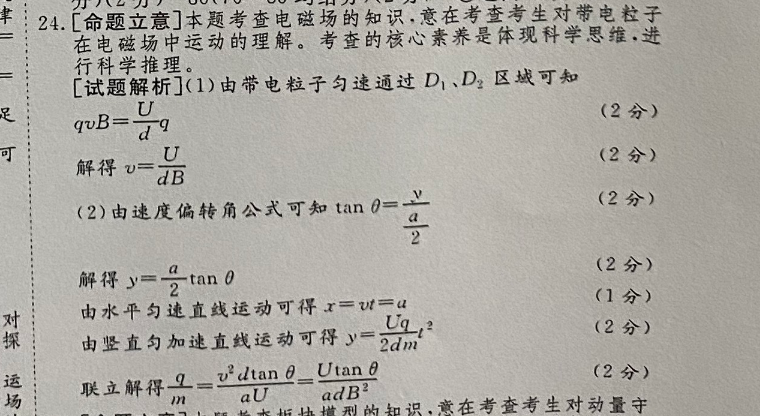 24.[命题立意]本题考查电磁场的知识,意在考查考生对带电粒子
在电磁场中运动的理解。考查的核心素养是体现科学思维,进
行科学推理。
[试题解析](1)由带电粒子匀速通过 D₁、D₂ 区域可知
qvB=U/d q (2 分)
解得 v=U/dB (2 分)
(2)由速度偏转角公式可知 tan θ=y/(a/2) (2 分)
解得 y=a/2 tan θ (2 分)
由水平匀速直线运动可得 x=vt=a (1 分)
由竖直匀加速直线运动可得 y=Uq/2dm t² (2 分)
联立解得 q/m=v²dtan θ/aU=Utan θ/adB² (2 分)
本题考查板块模型的知识,意在考查考生对动量守
律
足
可
对
探
运
场